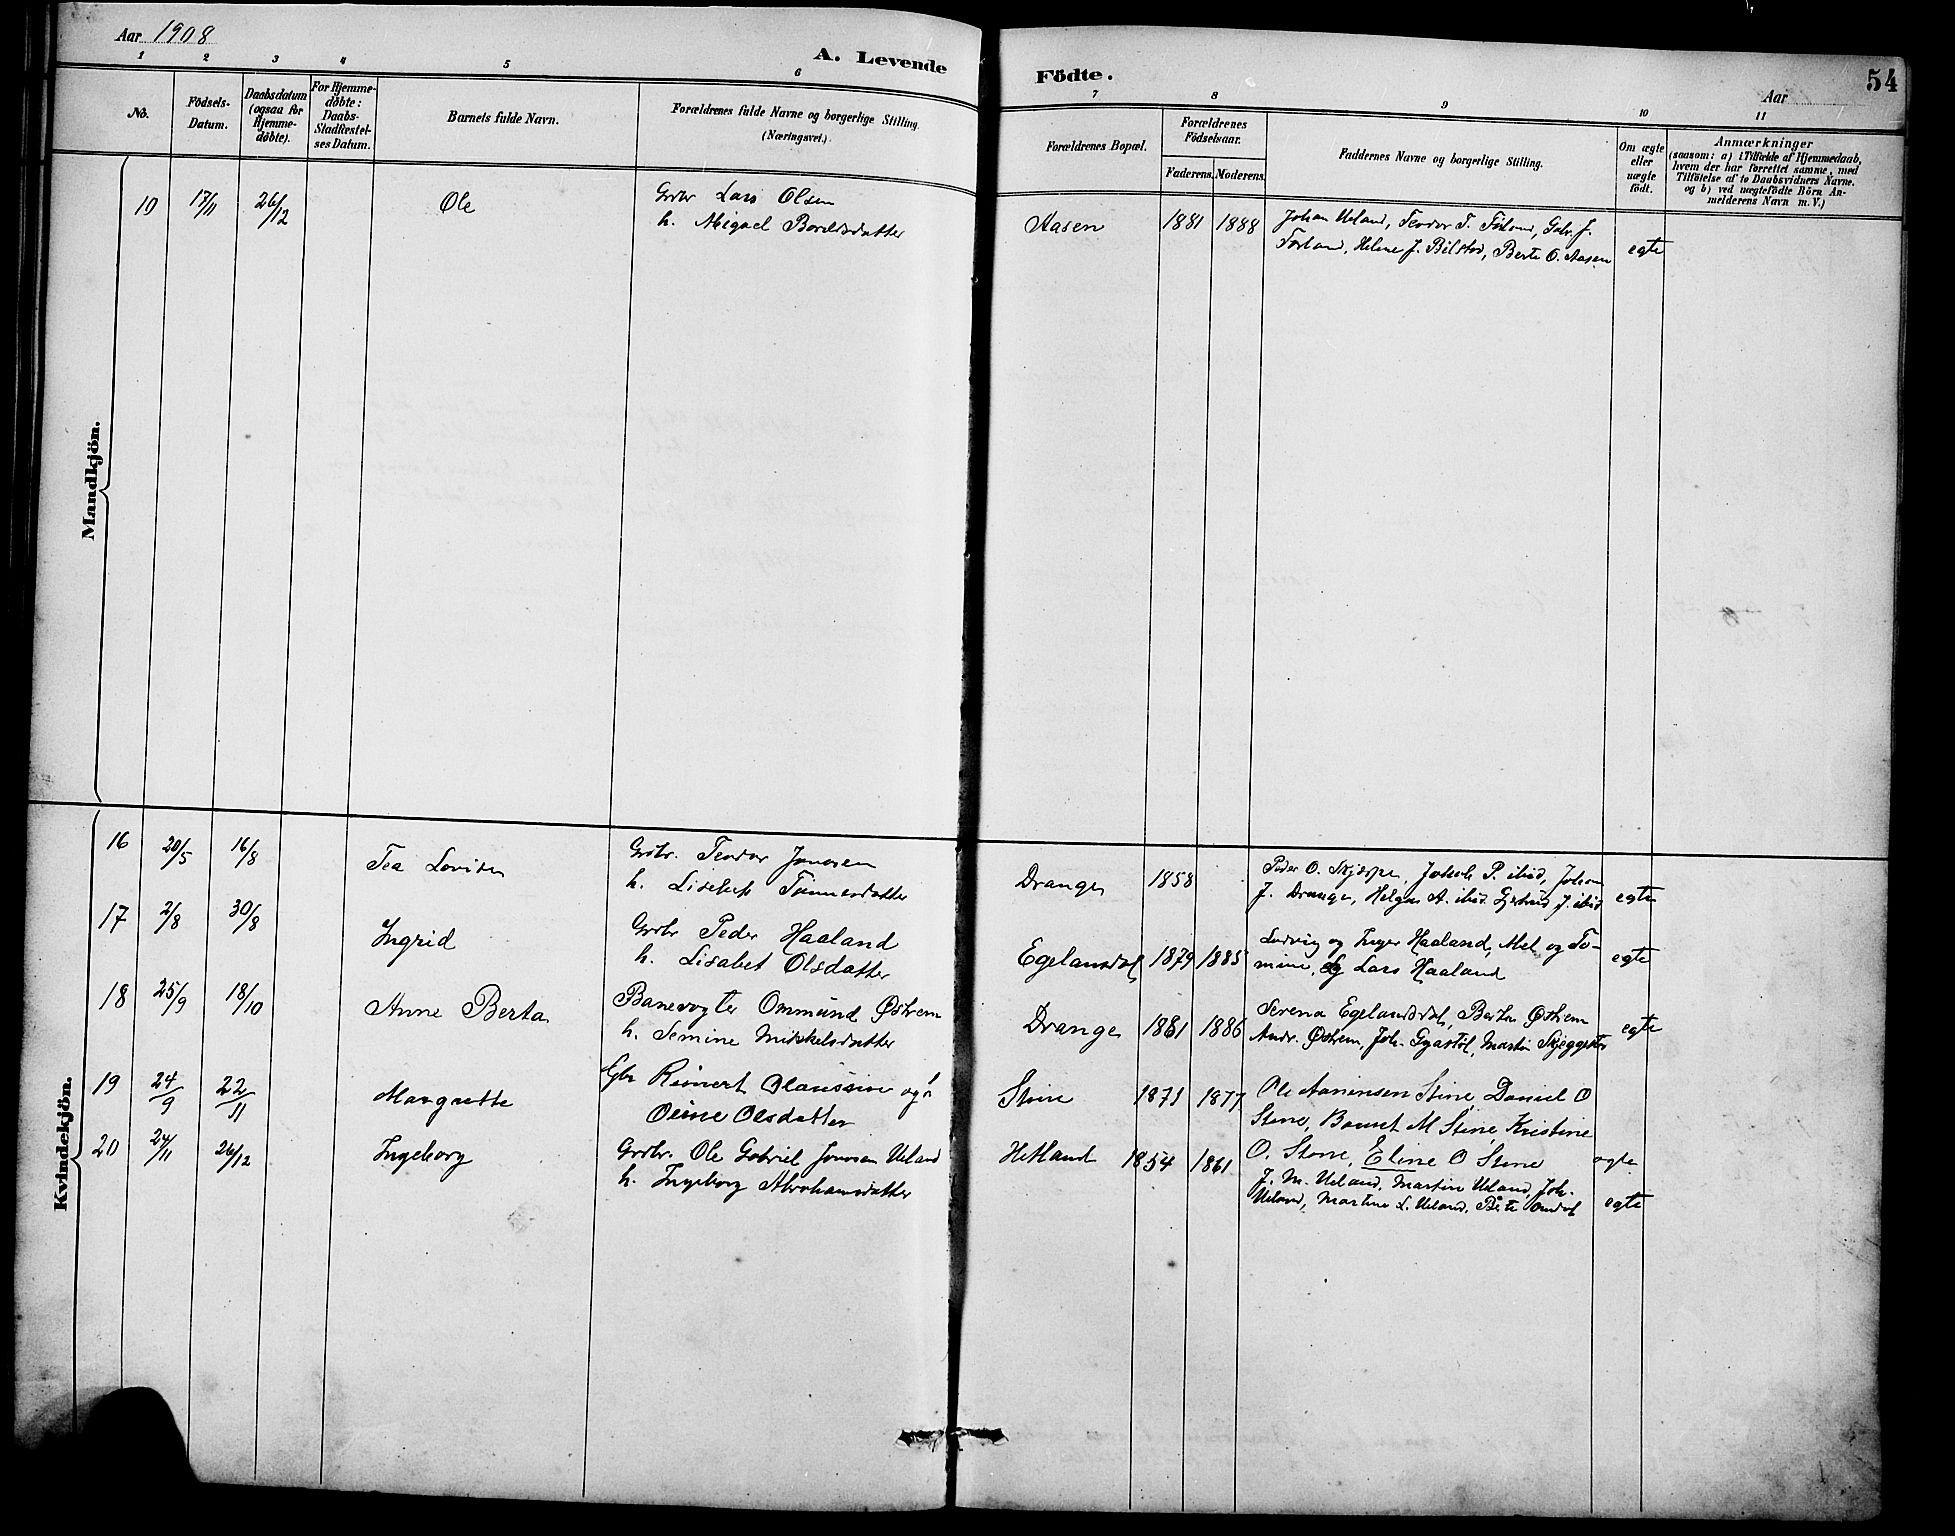 Aar 1908
A. Levende
Födte.
Aar
54
1 2 3 4 5 6 7 8 9 10 11
No.
Födsels-Datum.
Daabsdatum (ogsaa for Hjemme-døbte).
For Hjemme-døbte: Daabs-Stadfæstel-ses Datum.
Barnets fulde Navn.
Forældrenes fulde Navne og borgerlige Stilling.
(Næringsvei.)
Forældrenes Bopæl.
Forældrenes Födselsaar.
Faderens. Moderens.
Faddernes Navne og borgerlige Stilling.
Om ægte eller uægte födt.
Anmærkninger
(saasom: a) i Tilfælde af Hjemmedaab,
hvem der har forrettet samme, med
Tilföielse af to Daabsvidners Navne.
og b) ved uægtefödte Börn An-
melderens Navn m. V.)
Mandkjön.
19 17/11 26/12 Ole Grbr Lars Olsen
h. Abigael Bordsdatter
Aasen 1881 1888 Johan Ueland, Teodor T. Førland, Gabr. J.
Førland, Helene J. Bilstad, Berte O. Aasen egte
Kvindekjön.
16 20/5 16/8 Tea Lovise Grbr. Teodor Jonasen
h. Lisebet Tønnesdatter
Drange 1858 Peder O. Skjærpe, Jakob P. ibid, Johan
J. Drange, Helga A. ibid Gjertrud J. ibid egte
17 2/8 30/8 Ingrid Grbr Peder Haaland
h. Lisabet Olsdatter
Egelandsdal 1879 1885 Ludvig og Inger Haaland, Mel og To-
mine, og Lars Haaland egte
18 25/9 18/10 Anne Berta Banevogter Ommund Østrem
h. Semine Mikkelsdatter
Drange 1881 1886 Serena Egelandsdal, Berta Østrem
Andr. Østrem, Joh. Gyastøl, Martin Skjeggestad egte
19 24/9 22/11 Margrette Gbr Reinert Olaussen og h
Oline Olsdatter
Stene 1873 1877 Ole Aanensen Stene, Daniel O
Stene, M Stene Kristine
20 24/11 26/12 Ingeborg Grbr. Ole Gabriel Jonasen Ueland
h. Ingeborg Abrahamsdatter
Hetland 1854 1861 O. Stene, Eline O Stene ægte
J. M. Ueland, Martin Ueland, Joh.
Ueland, Martine L. Ueland, Berte Omdal egte